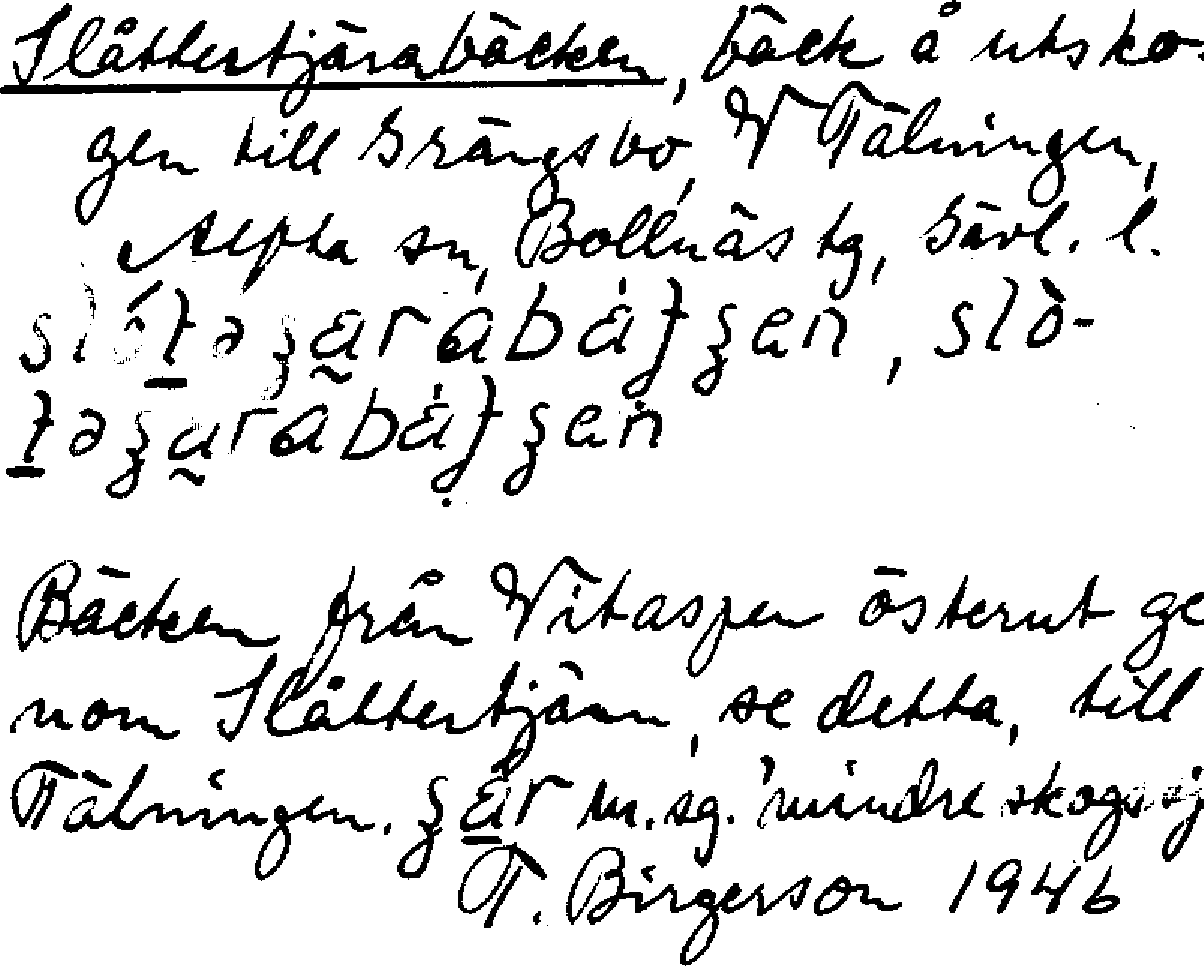 Slåttertjärabäcken, bäck å utsko-
gen till Grängsbo, V Tälningen,
Alfta sn, Bollnäs tg, Gävl. l.
slò̱təʒa̰rabátʒen, slò-
ṯəʒa̰rabátʒen
Bäcken från Vitaspen österut ge
nom Slåttertjärn, se detta, till
Tälningen. ʒa̱r m.sg. 'mindre skogssj
T. Birgerson 1946